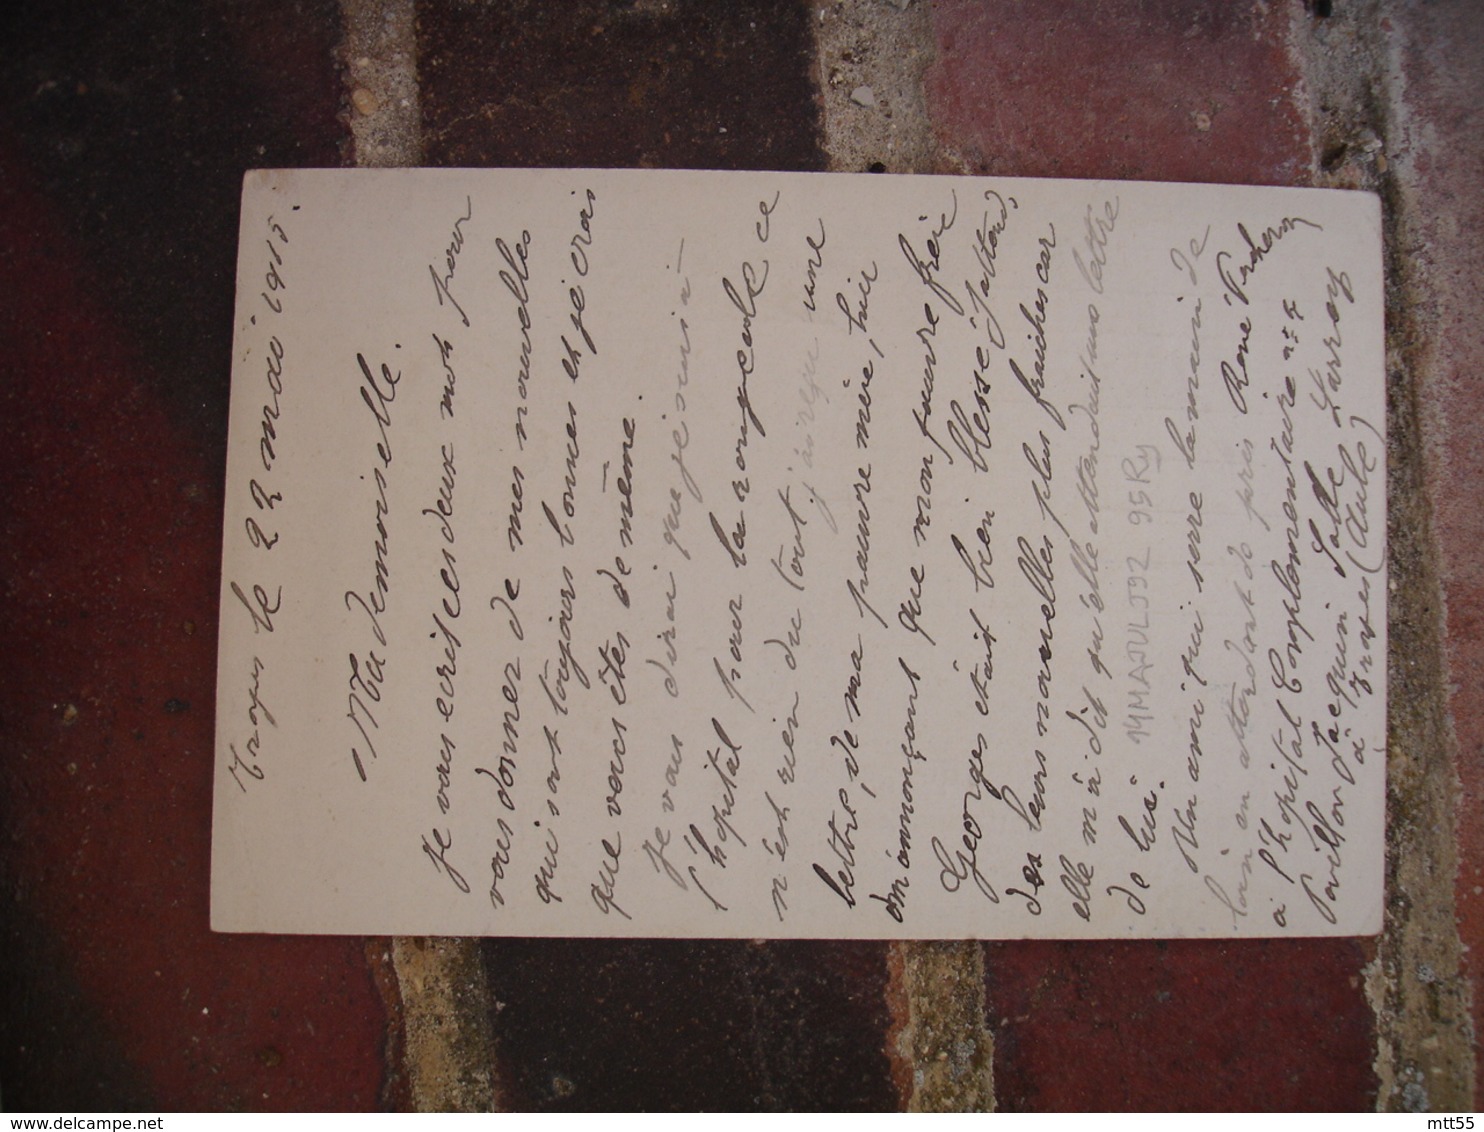 Troyes le 22 mai 1915.
Mademoiselle.
Je vous ecrit ces deux mots pour
vous donner de mes nouvelles
qui sont toujours bonnes et je crois
que vous êtes de même.
Je vous dirai que je suis à
l'hopital pour la rougeole ce
n'est rien du tout j'ai reçu une
lettre, de ma pauvre mère, hier
m'annonçant que mon pauvre frère
Georges etait bien blessé j'attend,
des leurs nouvelles plus fraiches car
elle m'a dit qu'elle attendait une lettre
de lui.
Un ami qui serre la main de
loin en attendant de près René
a l'hopital Complementaire n°
Pavillon Jacquin Salle Larrey
à Troyes (Aube)
14MAOUL092 95Ry
www.delcampe.net
mtt55